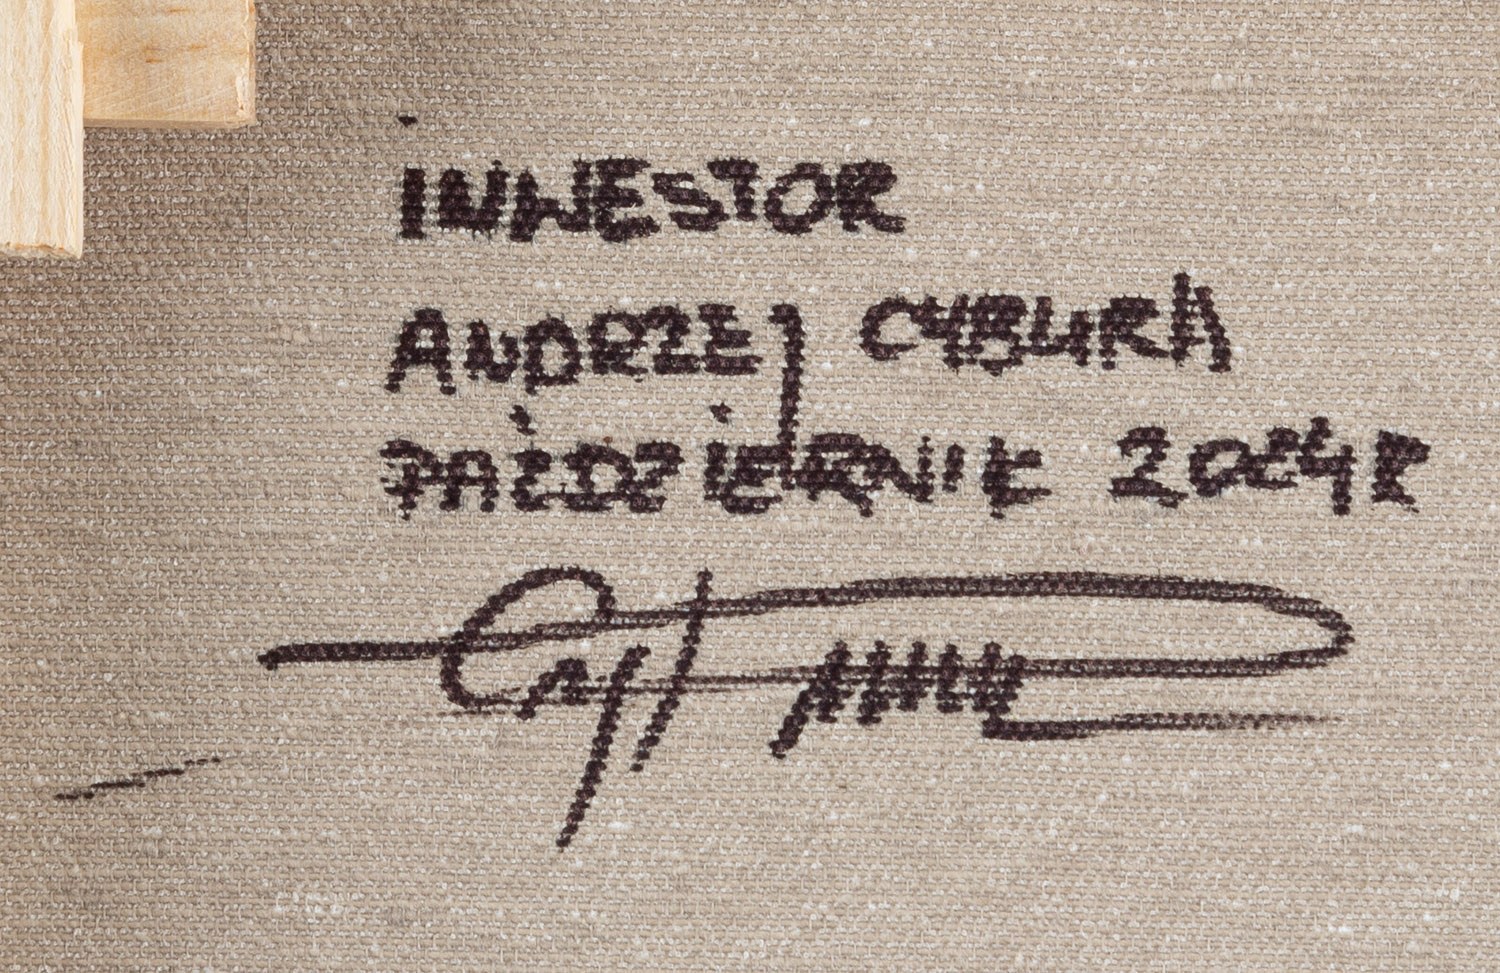 INWESTOR
ANDRZEJ CYBURA
PAŹDZIERNIK 2024R